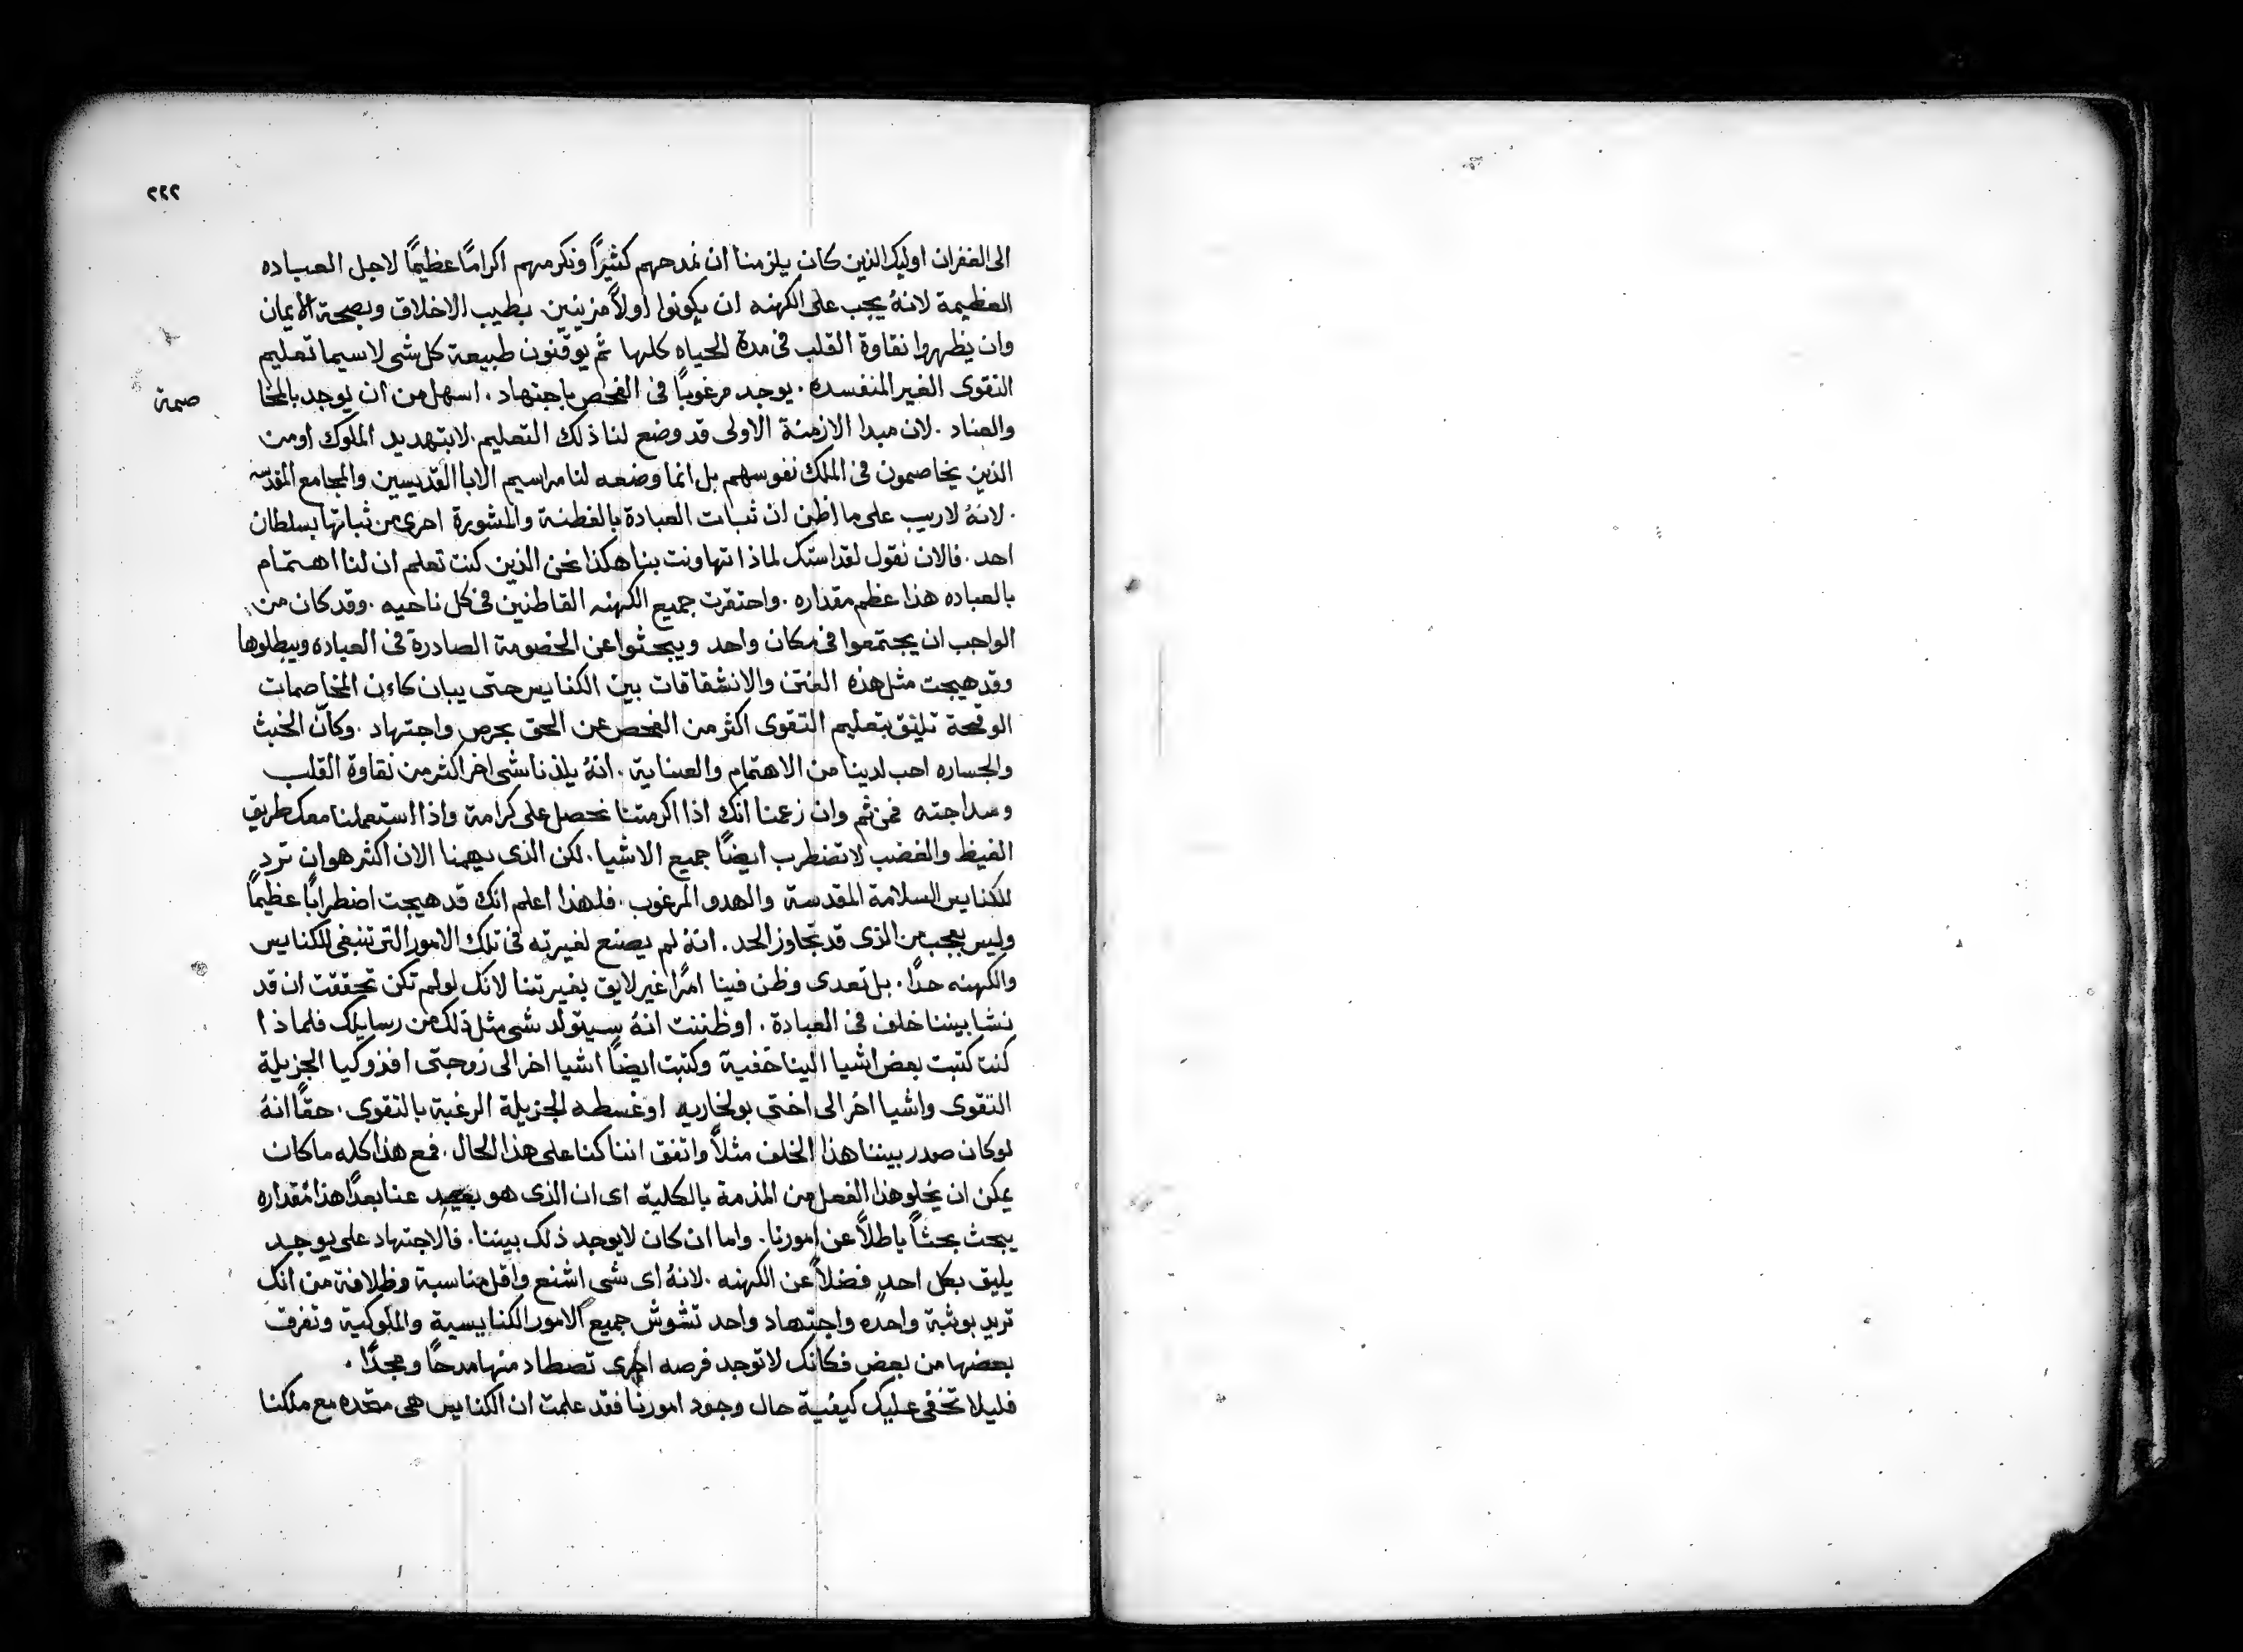 ٢٢٢
الى الغفران اوليك الذين كان يلزمنا ان نمدحهم كثيرًا ونكرمهم اكرامًا عظيمًا لاجل العباده
العظيمة لانهُ يجب على الكهنه ان يكونوا اولاً مزينين بطيب الاخلاق وبصحة الايمان
وان يظهروا نقاوة القلب فى مدة الحياه كلها ثم يوقنون طبيعة كل شى لاسيما تعليم
التقوى الغير المنفسده . يوجد مرغوبًا فى الفحص باجتهاد . اسهل من ان يوجد بالمخا
صمة
والعناد . لان مبدا الازمنة الاولى قد وضع لنا ذلك التعليم . لا بتهديد الملوك او من
الذين يخاصمون فى الملك نفوسهم بل انما وضعه لنا مراسيم الابا القديسين والمجامع المقدسه
. لانهُ لاريب على ما اظن ان ثبات العبادة بالفطنة والمشورة احرى من ثباتها بسلطان
احد . فالان نقول لقداستك لماذا تهاونت بنا هكذا نحن الذين كنت تعلم ان لنا اهتمام
بالعباده هذا عظم مقداره . واحتقرت جميع الكهنه القاطنين فى كل ناحيه . وقد كان من
الواجب ان يجتمعوا فى مكان واحد ويبحثوا عن الخصومة الصادرة فى العباده ويبطلوها
وقد هيجت مثل هذه الفتن والانشقاقات بين الكنايس حتى يبان كاءن المخاصمات
الوقحة تليق بتعليم التقوى اكثر من الفحص عن الحق بحرص واجتهاد . وكأن الخبث
والجساره احب لدينا من الاهتمام والعناية . انهُ يلذنا شى اخر اكثر من نقاوة القلب
وسداجته فمن ثم وان زعمنا انك اذا اكرمتنا نحصل على كرامة واذا استعملنا معك طريق
الغيظ والغضب لا تضطرب ايضًا جميع الاشيا . لكن الذى يهمنا الان اكثر هو ان ترد
للكنايس السلامة المقدسة والهدو المرغوب . فلهذا اعلم انك قد هيجت اضطرابًا عظيمًا
وليس بعجب من الذى قد تجاوز الحد . انهُ لم يصنع لغيرته فى تلك الامور التى تنبغى للكنايس
والكهنه حدًا . بل تعدى وظن فينا امرًا غير لايق بغيرتنا لانك لو لم تكن تحققت ان قد
نشا بيننا خلف فى العبادة . او ظننت انهُ سيتولد شى مثل ذلك من رسايلك فلماذا
كنت كتبت بعض اشيا الينا خفية وكتبت ايضًا اشيا اخر الى زوجتى افذوكيا الجزيلة
التقوى واشيا اخر الى اختى بولخاريه اوغسطه الجزيلة الرغبة بالتقوى . حقًا انهُ
لو كان صدر بيننا هذا الخلف مثلاً واتفق اننا كنا على هذا الحال . فمع هذا كله ما كان
يمكن ان يخلو هذا الفعل من المذمة بالكلية اى ان الذى هو بعيد عنا بعدًا هذا مقداره
يبحث بحثاً باطلاً عن امورنا . واما ان كان لا يوجد ذلك بيننا . فالاجتهاد على يوجد
يليق بكل احد فضلاً عن الكهنه . لانهُ اى شى اشنع واقل مناسبة وظلافة من انك
تريد بوثبة واحده واجتهاد واحد تشوش جميع الامور الكنايسية والملوكية وتفرق
بعضها من بعض فكانك لا توجد فرصه اخرى تصطاد منها مدحًا ومجدًا .
فليلا تخفى عليك كيفية حال وجود امورنا فقد علمت ان الكنايس هى متحده مع ملكنا